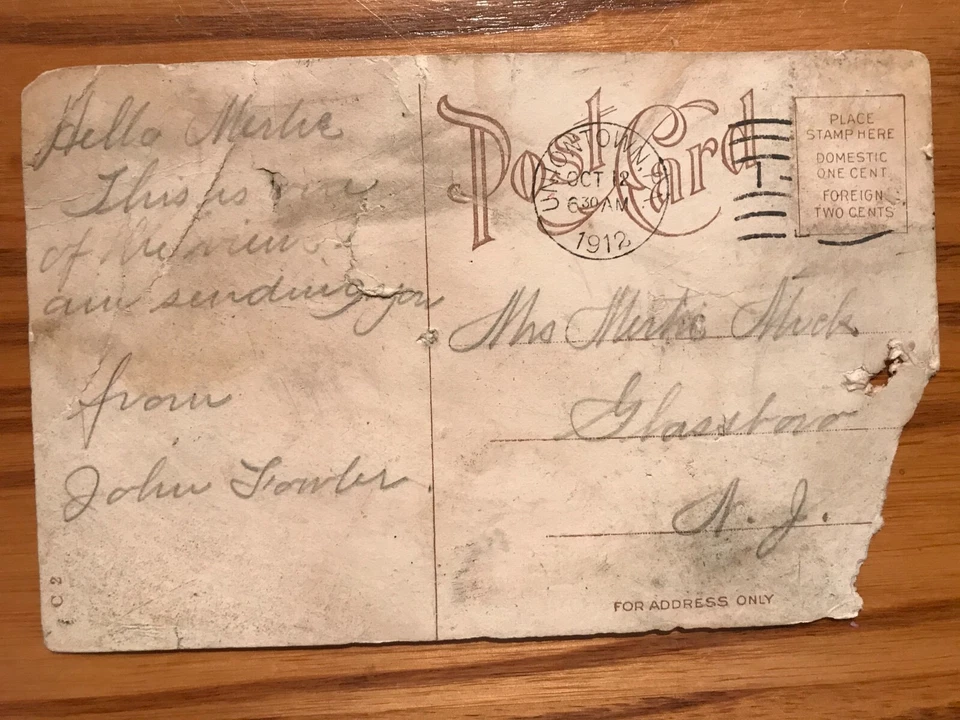 Hello Mertie
This is one
of the
am sending you
from
John Fowler
C 2
Post Card
UNIONTOWN
OCT 12
6 30 AM
1912
PLACE
STAMP HERE
DOMESTIC
ONE CENT
FOREIGN
TWO CENTS
Mrs Mertie
Glassboro
N. J.
FOR ADDRESS ONLY